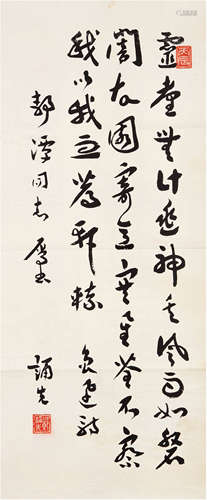 靈臺無計逃神矢風雨如磐
闇故園寄意寒星荃不察
我以我血薦軒轅 魯迅詩
同志屬書 誦先